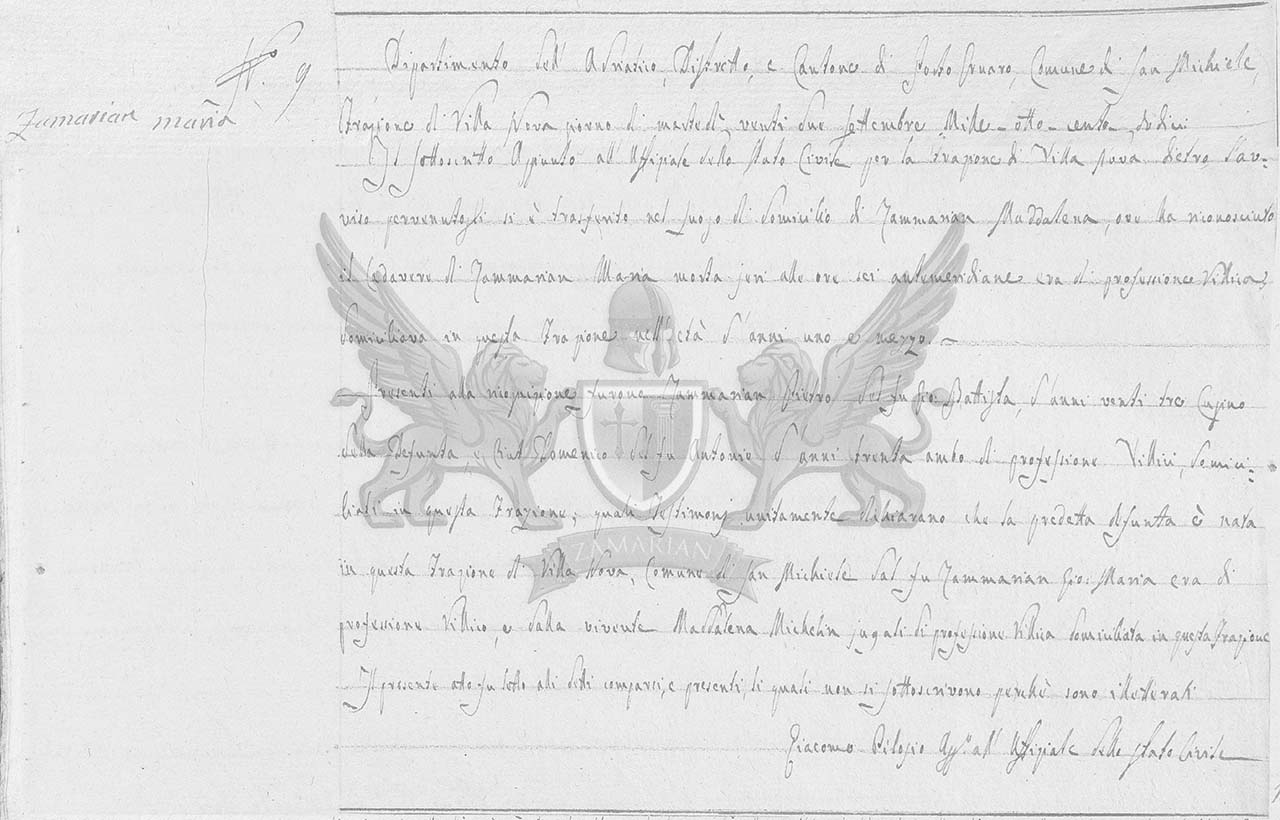 N.º 9
Zamarian maria
Dipartimento dell' Adriatico, Distretto, e Cantone di Porto Gruaro, Comune di San Michiele,
frazione di Villa Nova giorno di martedì, venti due settembre Mille-otto-cento-dodici
Il sottoscritto Agiunto all' Uffiziale dello stato Civile per la frazione di Villa Nova dietro l'av-
viso pervenutogli si è trasferito nel luogo di domicilio di Zammarian Maddalena, ove ha riconosciuto
il Cadavere di Zammarian Maria morta jeri alle ore sei antemeridiane era di professione Villica,
domiciliava in questa frazione nell'età d'anni uno e mezzo.-
Presenti alla ricognizione furono Zammarian Pietro del fu Gio: Battista, d'anni venti tre Cugino
della Defunta, e Domenico del fu Antonio d'anni trenta ambo di professione Villici, domici-
liati in questa frazione; quali Testimonj unitamente dichiarano che la predetta defunta è nata
in questa frazione di Villa Nova, Comune di San Michiele dal fu Zammarian Gio: Maria era di
professione Villico, e dalla vivente Maddalena Michelin jugali di professione Villica domiciliata in questa frazione
Il presente atto fu letto alli detti comparsi, e presenti, li quali non si sottoscrivono perchè sono illetterati
Giacomo Pilosio Agg.º all' Uffiziale dello stato Civile
ZAMARIAN